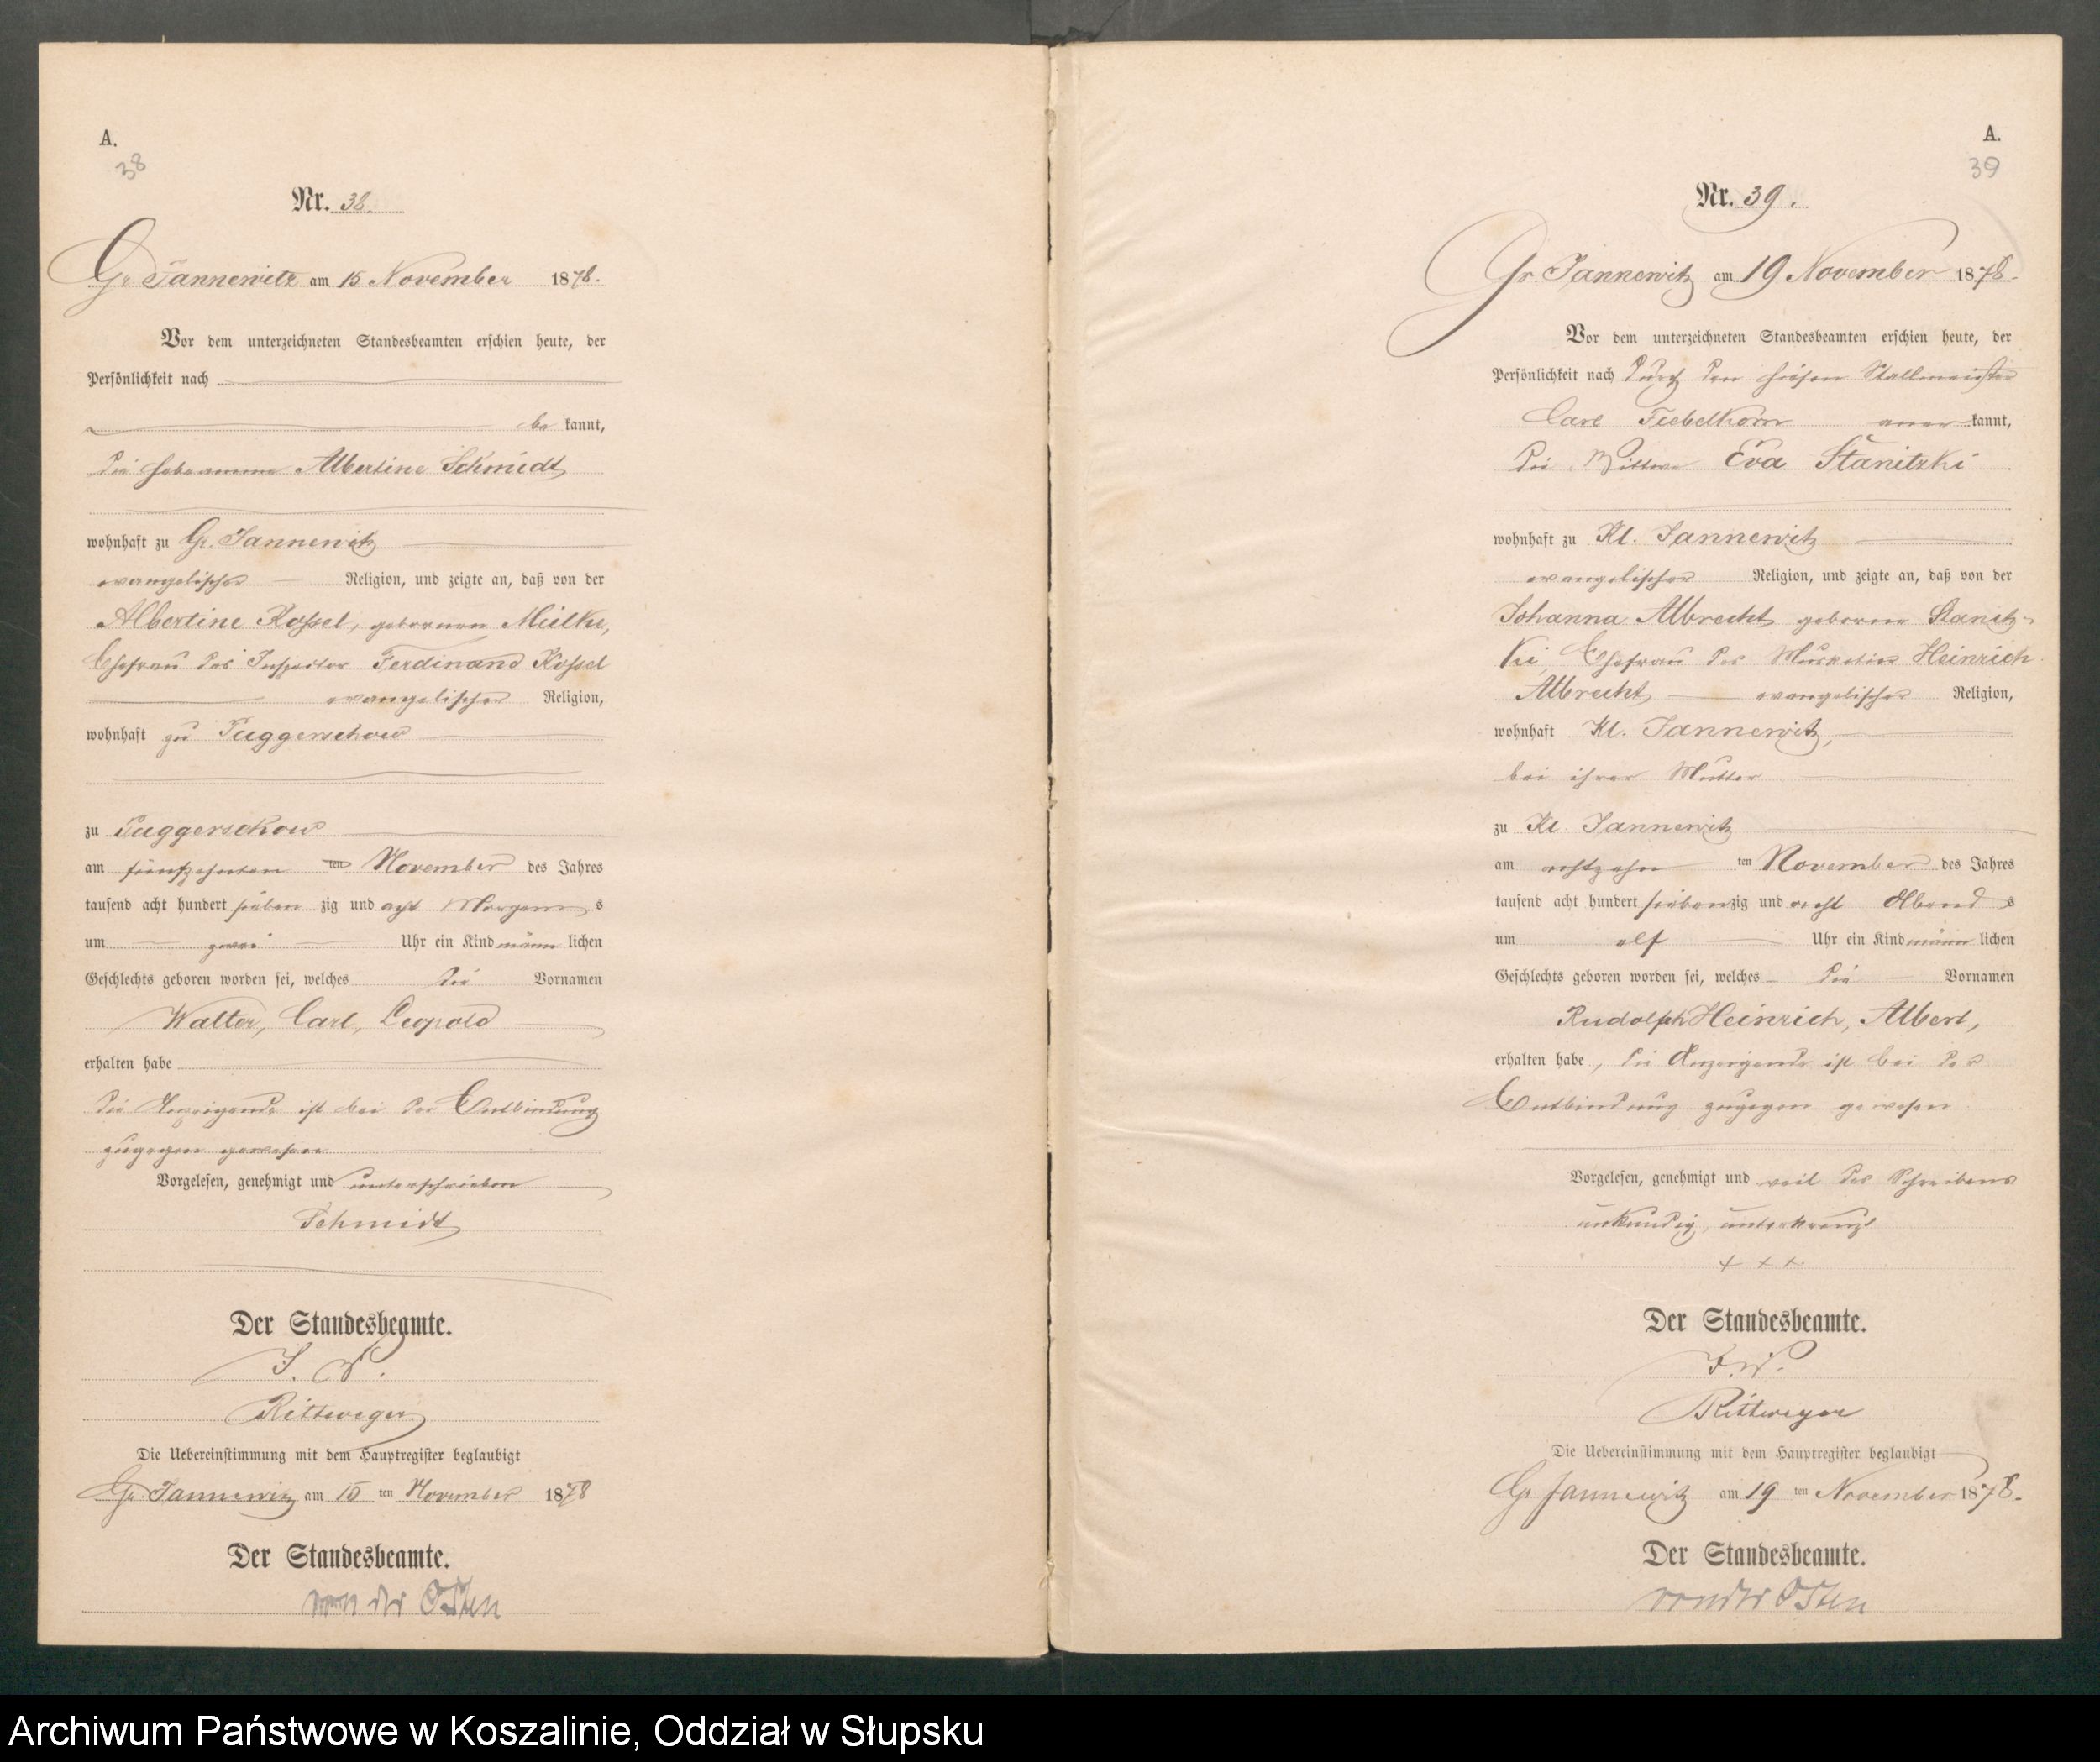 A.
38
Nr. 38.
Gr. Jannewitz am 15 November 1878.
Vor dem unterzeichneten Standesbeamten erschien heute, der
Persönlichkeit nach
be kannt,
die Hebeamme Albertine Schmidt
wohnhaft zu Gr. Jannewitz
evangelischer Religion, und zeigte an, daß von der
Albertine Kossel, gebornen Mielke,
Ehefrau des Inspector Ferdinand Kossel
evangelischer Religion,
wohnhaft zu Puggerschow
zu Puggerschow
am fünfzehnten ten November des Jahres
tausend acht hundert sieben zig und acht Morgens
um zwei Uhr ein Kind männ lichen
Geschlechts geboren worden sei, welches die Vornamen
Walter, Carl, Leopold
erhalten habe
die Anzeigende ist bei der Entbindung
zugegen gewesen
Vorgelesen, genehmigt und unterschrieben
Schmidt
Der Standesbeamte.
J. V.
Rittweger
Die Uebereinstimmung mit dem Hauptregister beglaubigt
Gr. Jannewitz am 15 ten November 1878
Der Standesbeamte.
von der Osten
A.
39
Nr. 39.
Gr. Jannewitz am 19 November 1878.
Vor dem unterzeichneten Standesbeamten erschien heute, der
Persönlichkeit nach durch den Stallmeister
Carl Fiebelkorn aner kannt,
die Wittwe Eva Stanitzki
wohnhaft zu Kl. Jannewitz
evangelischer Religion, und zeigte an, daß von der
Johanna Albrecht geborne Stanitz-
ki Ehefrau des Musketier Heinrich
Albrecht evangelischer Religion,
wohnhaft Kl. Jannewitz,
bei ihrer Mutter
zu Kl. Jannewitz
am achtzehn ten November des Jahres
tausend acht hundert siebenzig und acht Abends
um elf Uhr ein Kind männ lichen
Geschlechts geboren worden sei, welches die Vornamen
Rudolph Heinrich, Albert,
erhalten habe, die Anzeigende ist bei der
Entbindung zugegen gewesen
Vorgelesen, genehmigt und weil des Schreibens
unkundig, unterkreuzt
+ + +
Der Standesbeamte.
J. V.
Rittweger
Die Uebereinstimmung mit dem Hauptregister beglaubigt
Gr. Jannewitz am 19 ten November 1878.
Der Standesbeamte.
von der Osten
Archiwum Państwowe w Koszalinie, Oddział w Słupsku